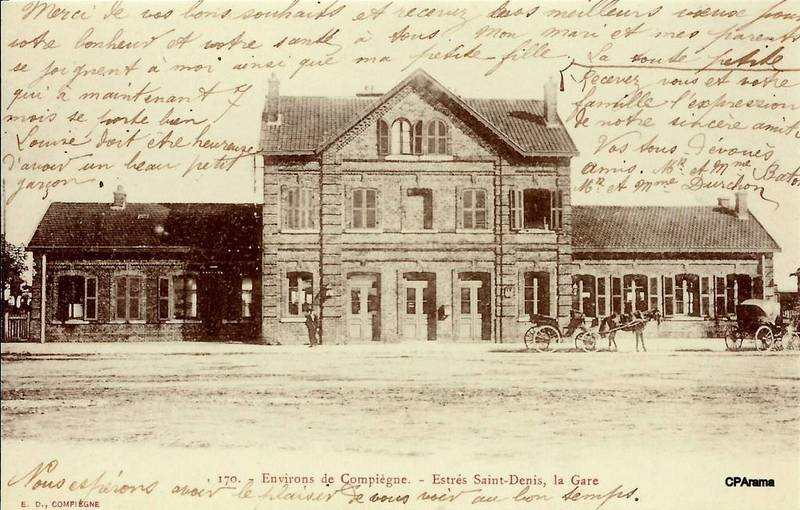 Merci de vos bons souhaits et recevez nos meilleurs voeux pour
votre bonheur et votre santé à tous. Mon mari et mes parents
se joignent à moi ainsi que ma petite-fille. La toute petite
qui a maintenant 7
mois se porte bien.
Louise doit être heureuse
d'avoir un beau petit
garçon
Recevez vous et votre
famille l'expression
de notre sincère amitié
Vos tous dévoués
amis. Mr et Mme
Mr et Mme Durchon
170. - Environs de Compiègne. - Estrés Saint-Denis, la Gare
Nous espérons avoir le plaisir de vous voir au bon temps.
E. D., COMPIÈGNE
CPArama